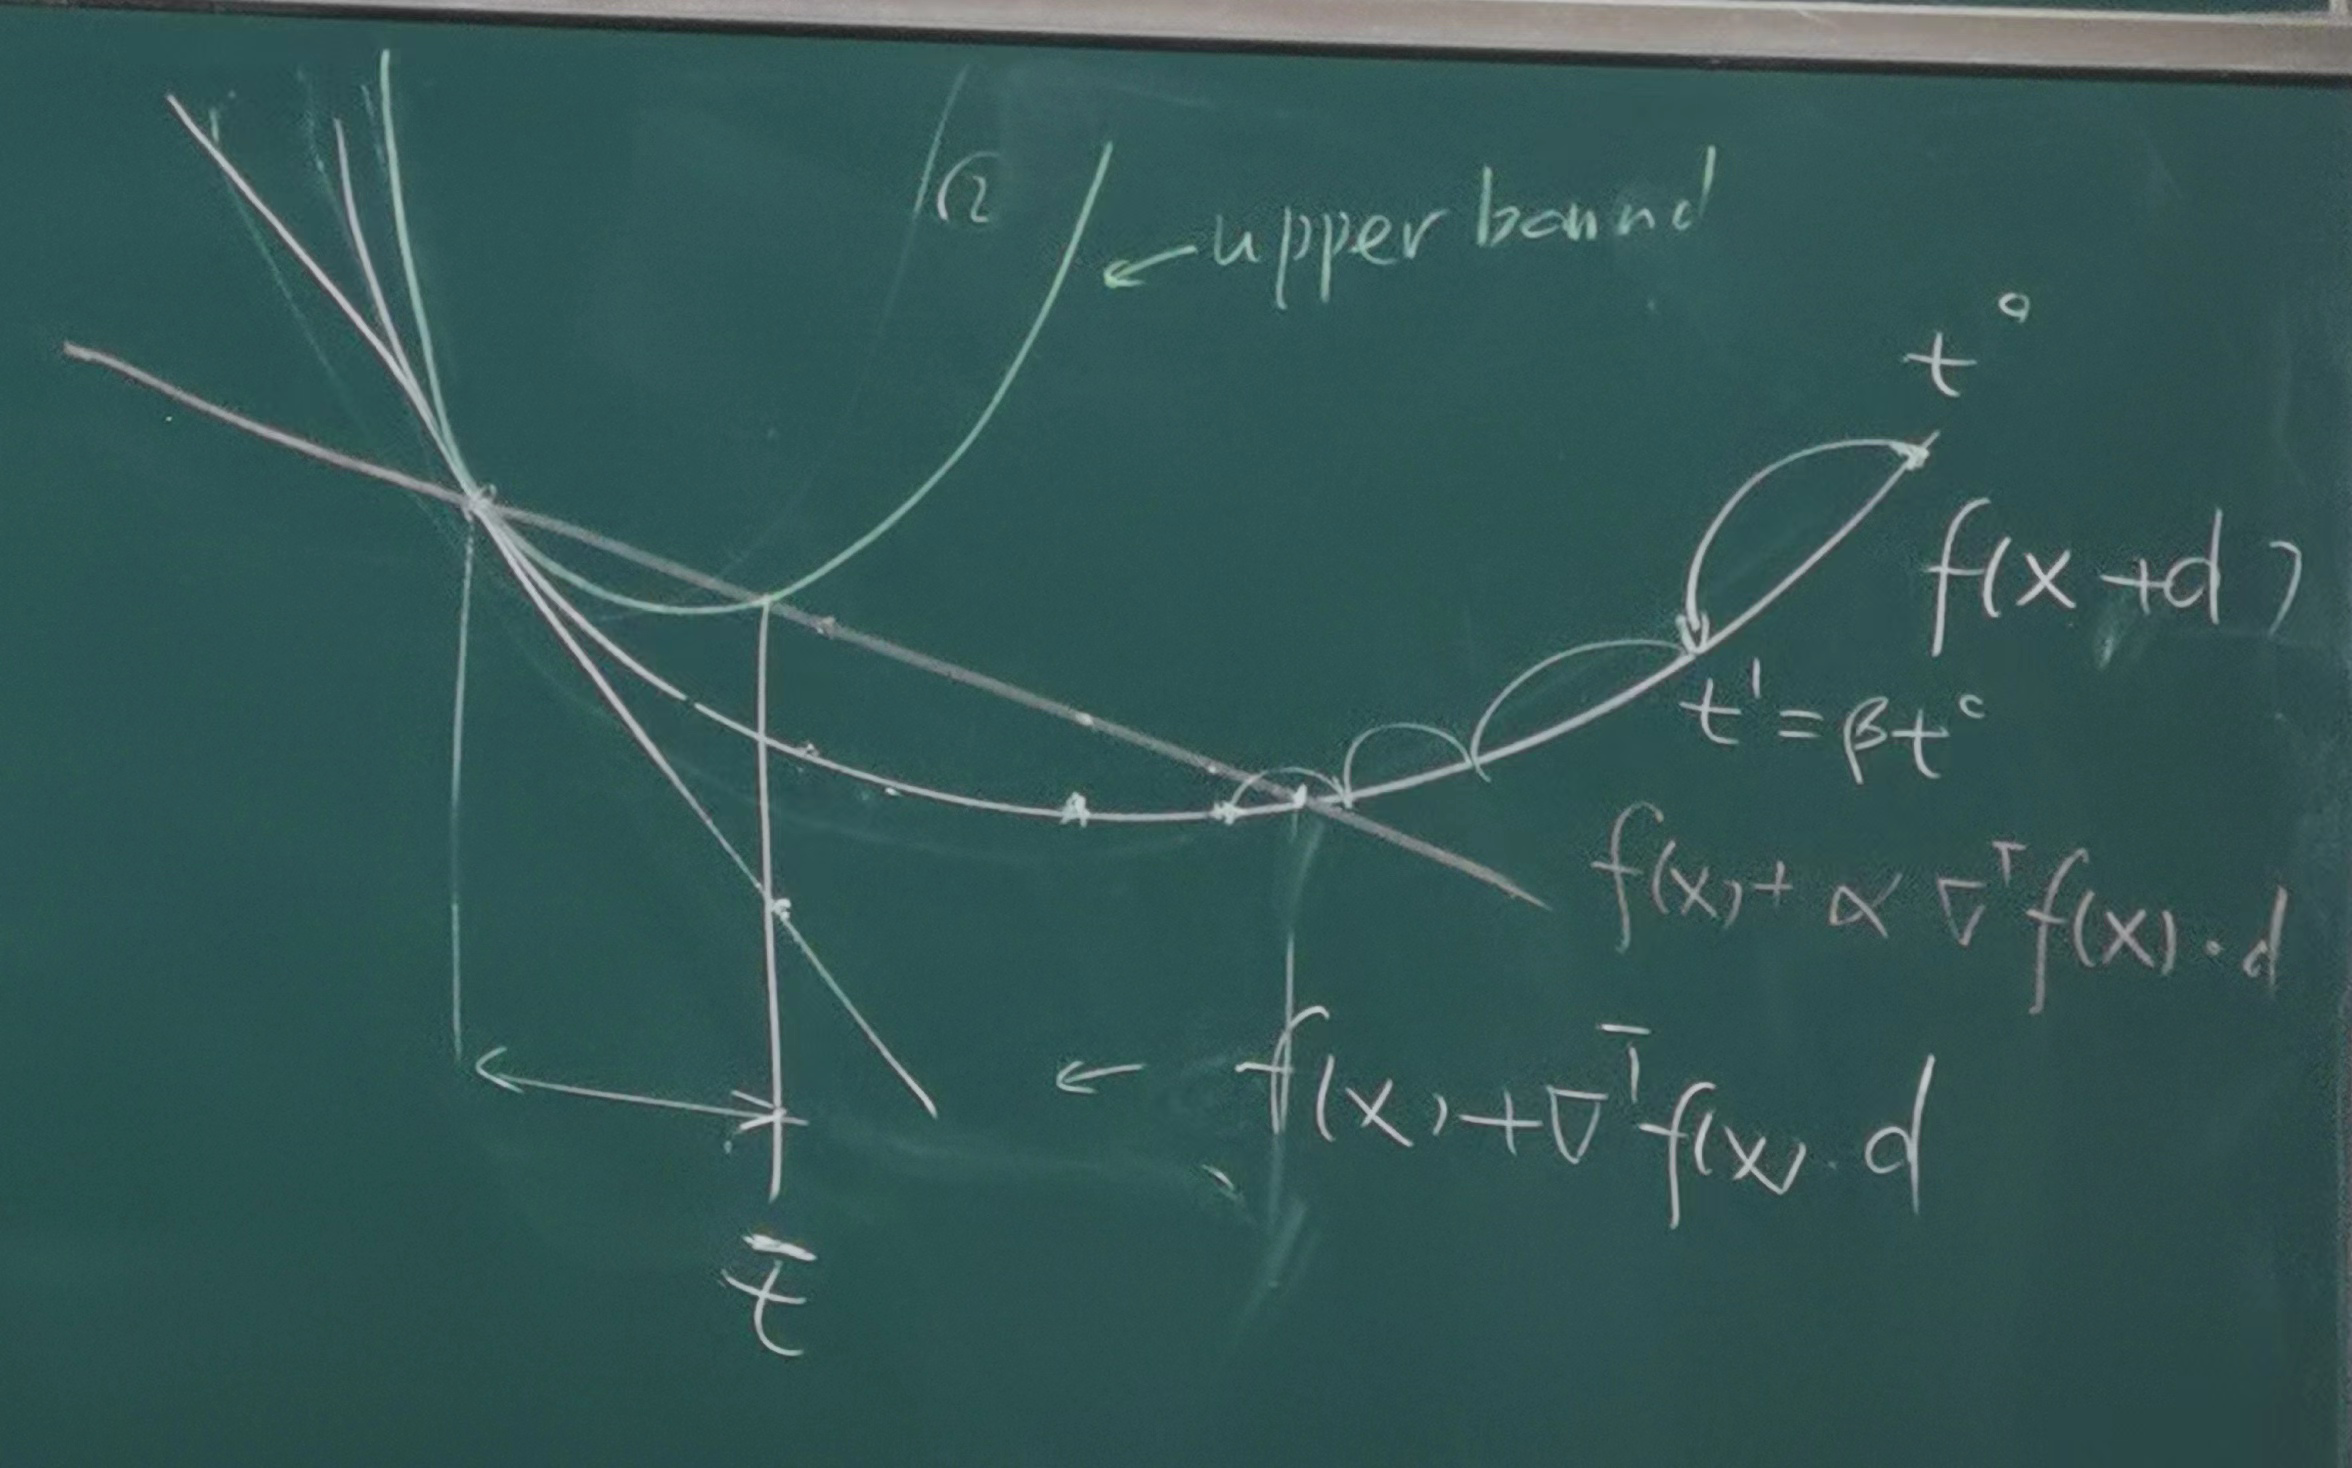 upper bound
t⁰
f(x+d)
t¹ = βt⁰
f(x) + α ∇ᵀf(x)·d
← f(x) + ∇ᵀf(x)·d
t̄